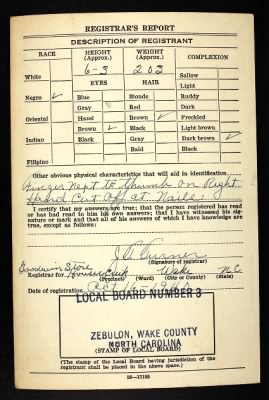 REGISTRAR'S REPORT
DESCRIPTION OF REGISTRANT
RACE HEIGHT (Approx.) WEIGHT (Approx.) COMPLEXION
White 6-3 203 Sallow
EYES HAIR Light
Negro ✓ Blue Blonde Ruddy
Gray Red Dark
Oriental Hazel Brown ✓ Freckled
Brown ✓ Black Light brown
Indian Black Gray Dark brown ✓
Bald Black
Filipino
Other obvious physical characteristics that will aid in identification
Finger next to thumb on Right
Hand Cut Off at Nails.
I certify that my answers are true; that the person registered has read or has had read to him his own answers; that I have witnessed his signature or mark and that all of his answers of which I have knowledge are true, except as follows:
(Signature of registrar)
Registrar for Wake N.C.
(Precinct) (Ward) (City or County) (State)
Date of registration Oct 16-1940
LOCAL BOARD NUMBER 3
ZEBULON, WAKE COUNTY
NORTH CAROLINA
(STAMP OF LOCAL BOARD)
(The stamp of the Local Board having jurisdiction of the registrant shall be placed in the above space.)